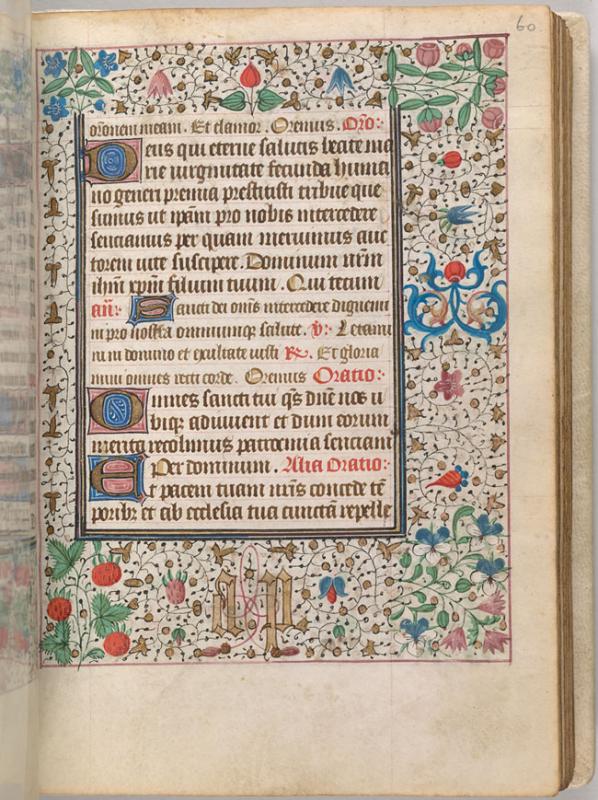 60
or̃onem meam. Et clamor. Oremus. Or̃o:
Deus qui eterne salutis beate ma
rie uirginitate fecunda huma
no generi premia prestitisti tribue que
sumus ut ip̃am pro nobis intercedere
senciamus per quam meruimus auc
torem uite suscipere. Dominum nr̃m
ih̃m xp̃m filium tuum. Qui tecum
añ: Sancti dei om̃s intercedere dignemi
ni pro nostra omniumqꝫ salute. ꝟ. Letami
ni in domino et exultate iusti ℟. Et gloria
mini omnes recti corde. Oremus Oratio:
Omnes sancti tui q̃s dñe nos u
biqꝫ adiuuent et dum eorum
merita recolimus patrocinia senciam̃
Per dominum. Alia Oratio:
Et pacem tuam nr̃is concede tẽ
poribꝫ et ab ecclesia tua cunctã repelle